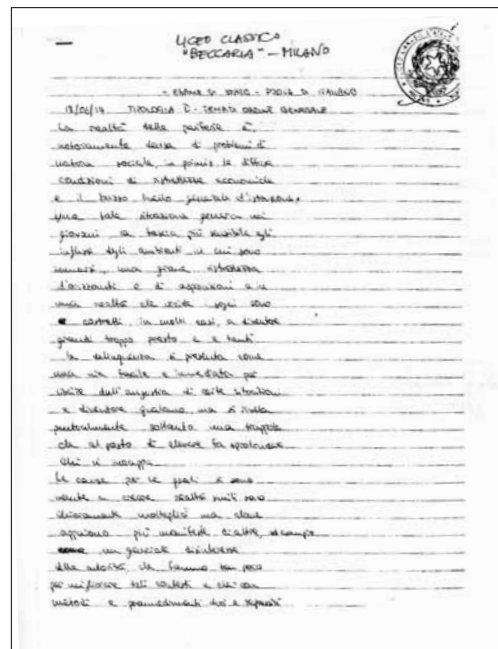 LICEO CLASSICO
"BECCARIA" - MILANO
- ESAME DI STATO - PROVA DI ITALIANO
18/06/14 TIPOLOGIA D - TEMA DI ORDINE GENERALE
La realtà delle periferie è,
notoriamente densa di problemi di
natura sociale, in primis le diffuse
condizioni di ristrettezze economiche
e il basso livello generale d'istruzione.
Una tale situazione genera nei
giovani, la fascia più sensibile agli
influssi degli ambienti in cui sono
immersi, una grave ristrettezza
d'orizzonti e di aspirazioni e in
una realtà che vieta sogni sono
costretti, in molti casi, a diventare
grandi troppo presto e a tentoni
la delinquenza si presenta come
una via facile e immediata per
uscire dall'angustia di certe situazioni
e diventare qualcuno, ma si rivela
puntualmente soltanto una trappola
che al posto di elevare fa sprofondare
chi vi incappa.
Le cause per le quali si sono
venute a creare realtà simili sono
chiaramente molteplici ma alcune
appaiono più manifeste di altre, ad esempio
un generale disinteresse
delle autorità, che fanno ben poco
per migliorare tali contesti e che con
metodi e provvedimenti duri e